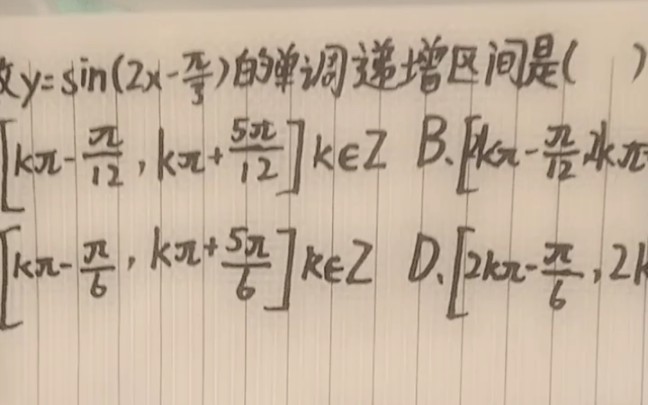 y=sin(2x-π/3)的单调递增区间是( )
[kπ-π/12, kπ+5π/12] k∈Z B.[2kπ-π/12, 2kπ
[kπ-π/6, kπ+5π/6] k∈Z D.[2kπ-π/6, 2k